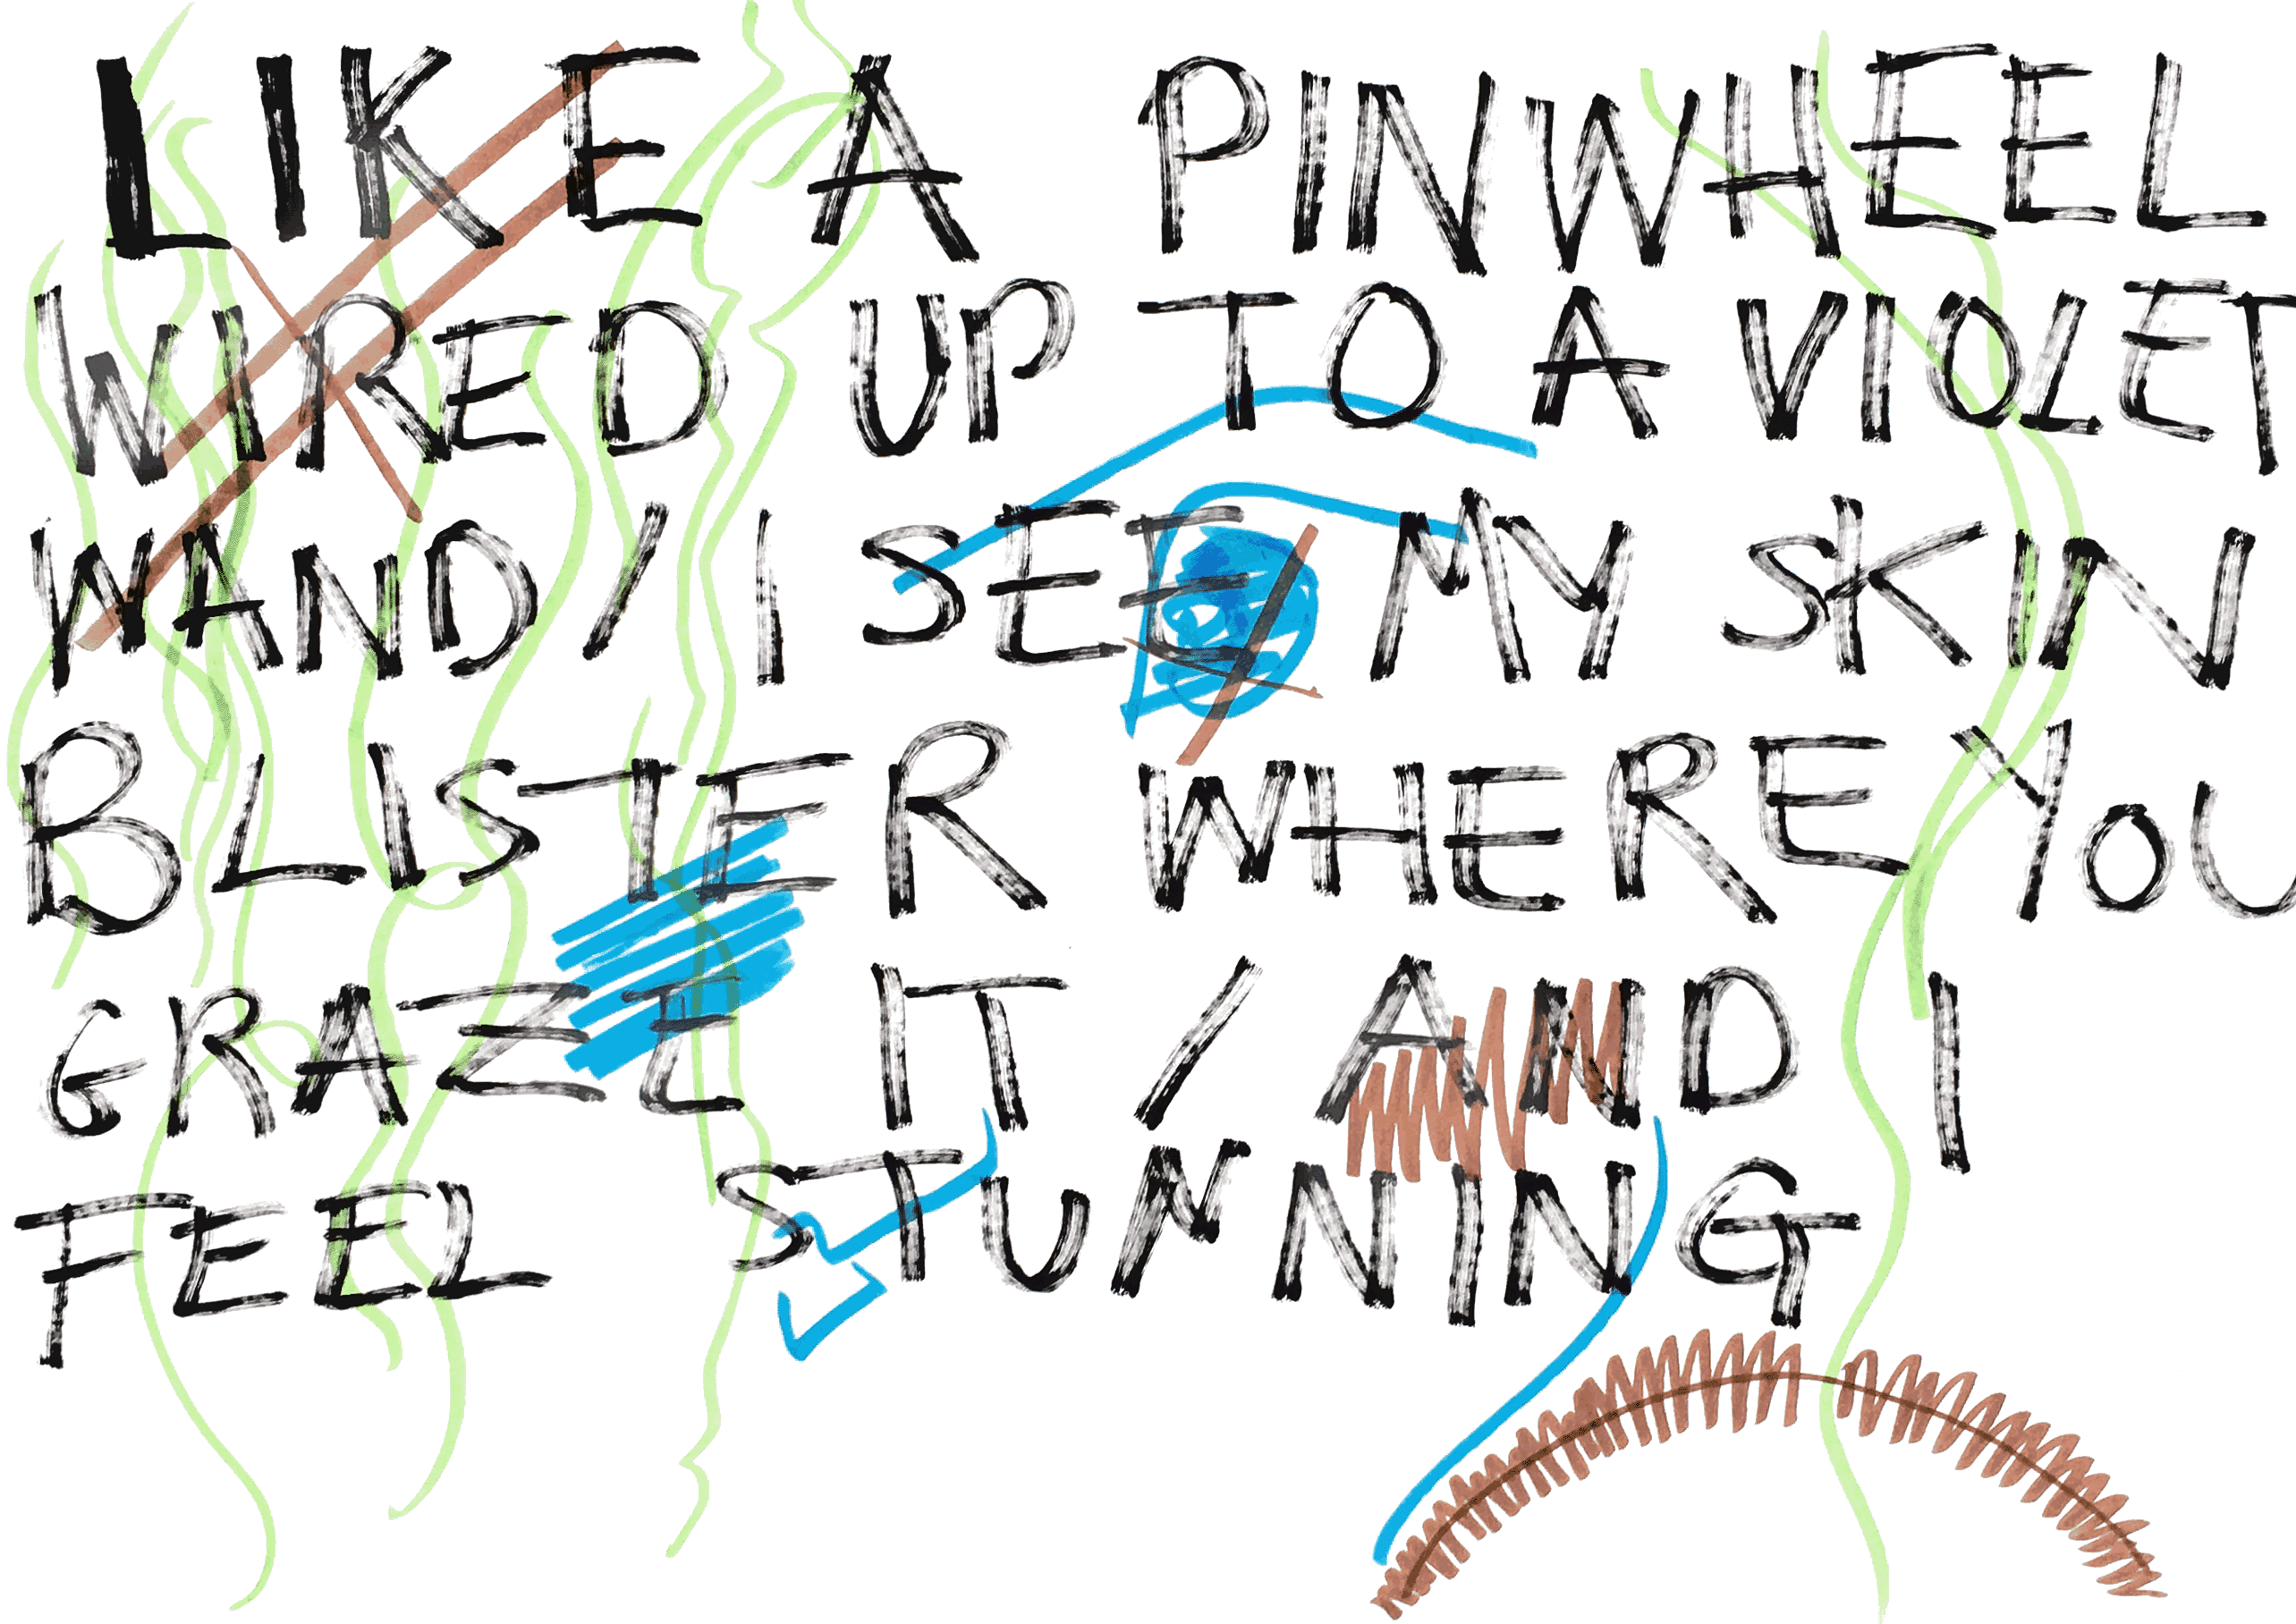 LIKE A PINWHEEL
WIRED UP TO A VIOLET
WAND / I SEE MY SKIN
BLISTER WHERE YOU
GRAZE IT / AND I
FEEL STUNNING